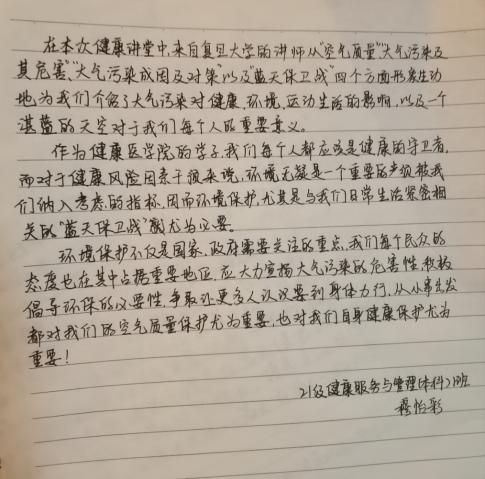 在本次健康讲堂中,来自复旦大学的讲师从“空气质量”“大气污染及
其危害”“大气污染成因及对策”以及“蓝天保卫战”四个方面形象生动
地为我们介绍了大气污染对健康、环境、运动生活的影响,以及一个
湛蓝的天空对于我们每个人的重要意义。
作为健康医学院的学子,我们每个人都应该是健康的守卫者,
而对于健康风险因素干预来说,环境无疑是一个重要的必须被我
们纳入考虑的指标,因而环境保护,尤其是与我们日常生活紧密相
关的“蓝天保卫战”就尤为必要。
环境保护不仅是国家、政府需要关注的重点,我们每个民众的
态度也在其中占据重要地位,应大力宣扬大气污染的危害性,积极
倡导环保的必要性,争取让更多人认识到身体力行,从小事出发
都对我们的空气质量保护尤为重要,也对我们自身健康保护尤为
重要!
21级健康服务与管理(本科)1班
穆怡彩